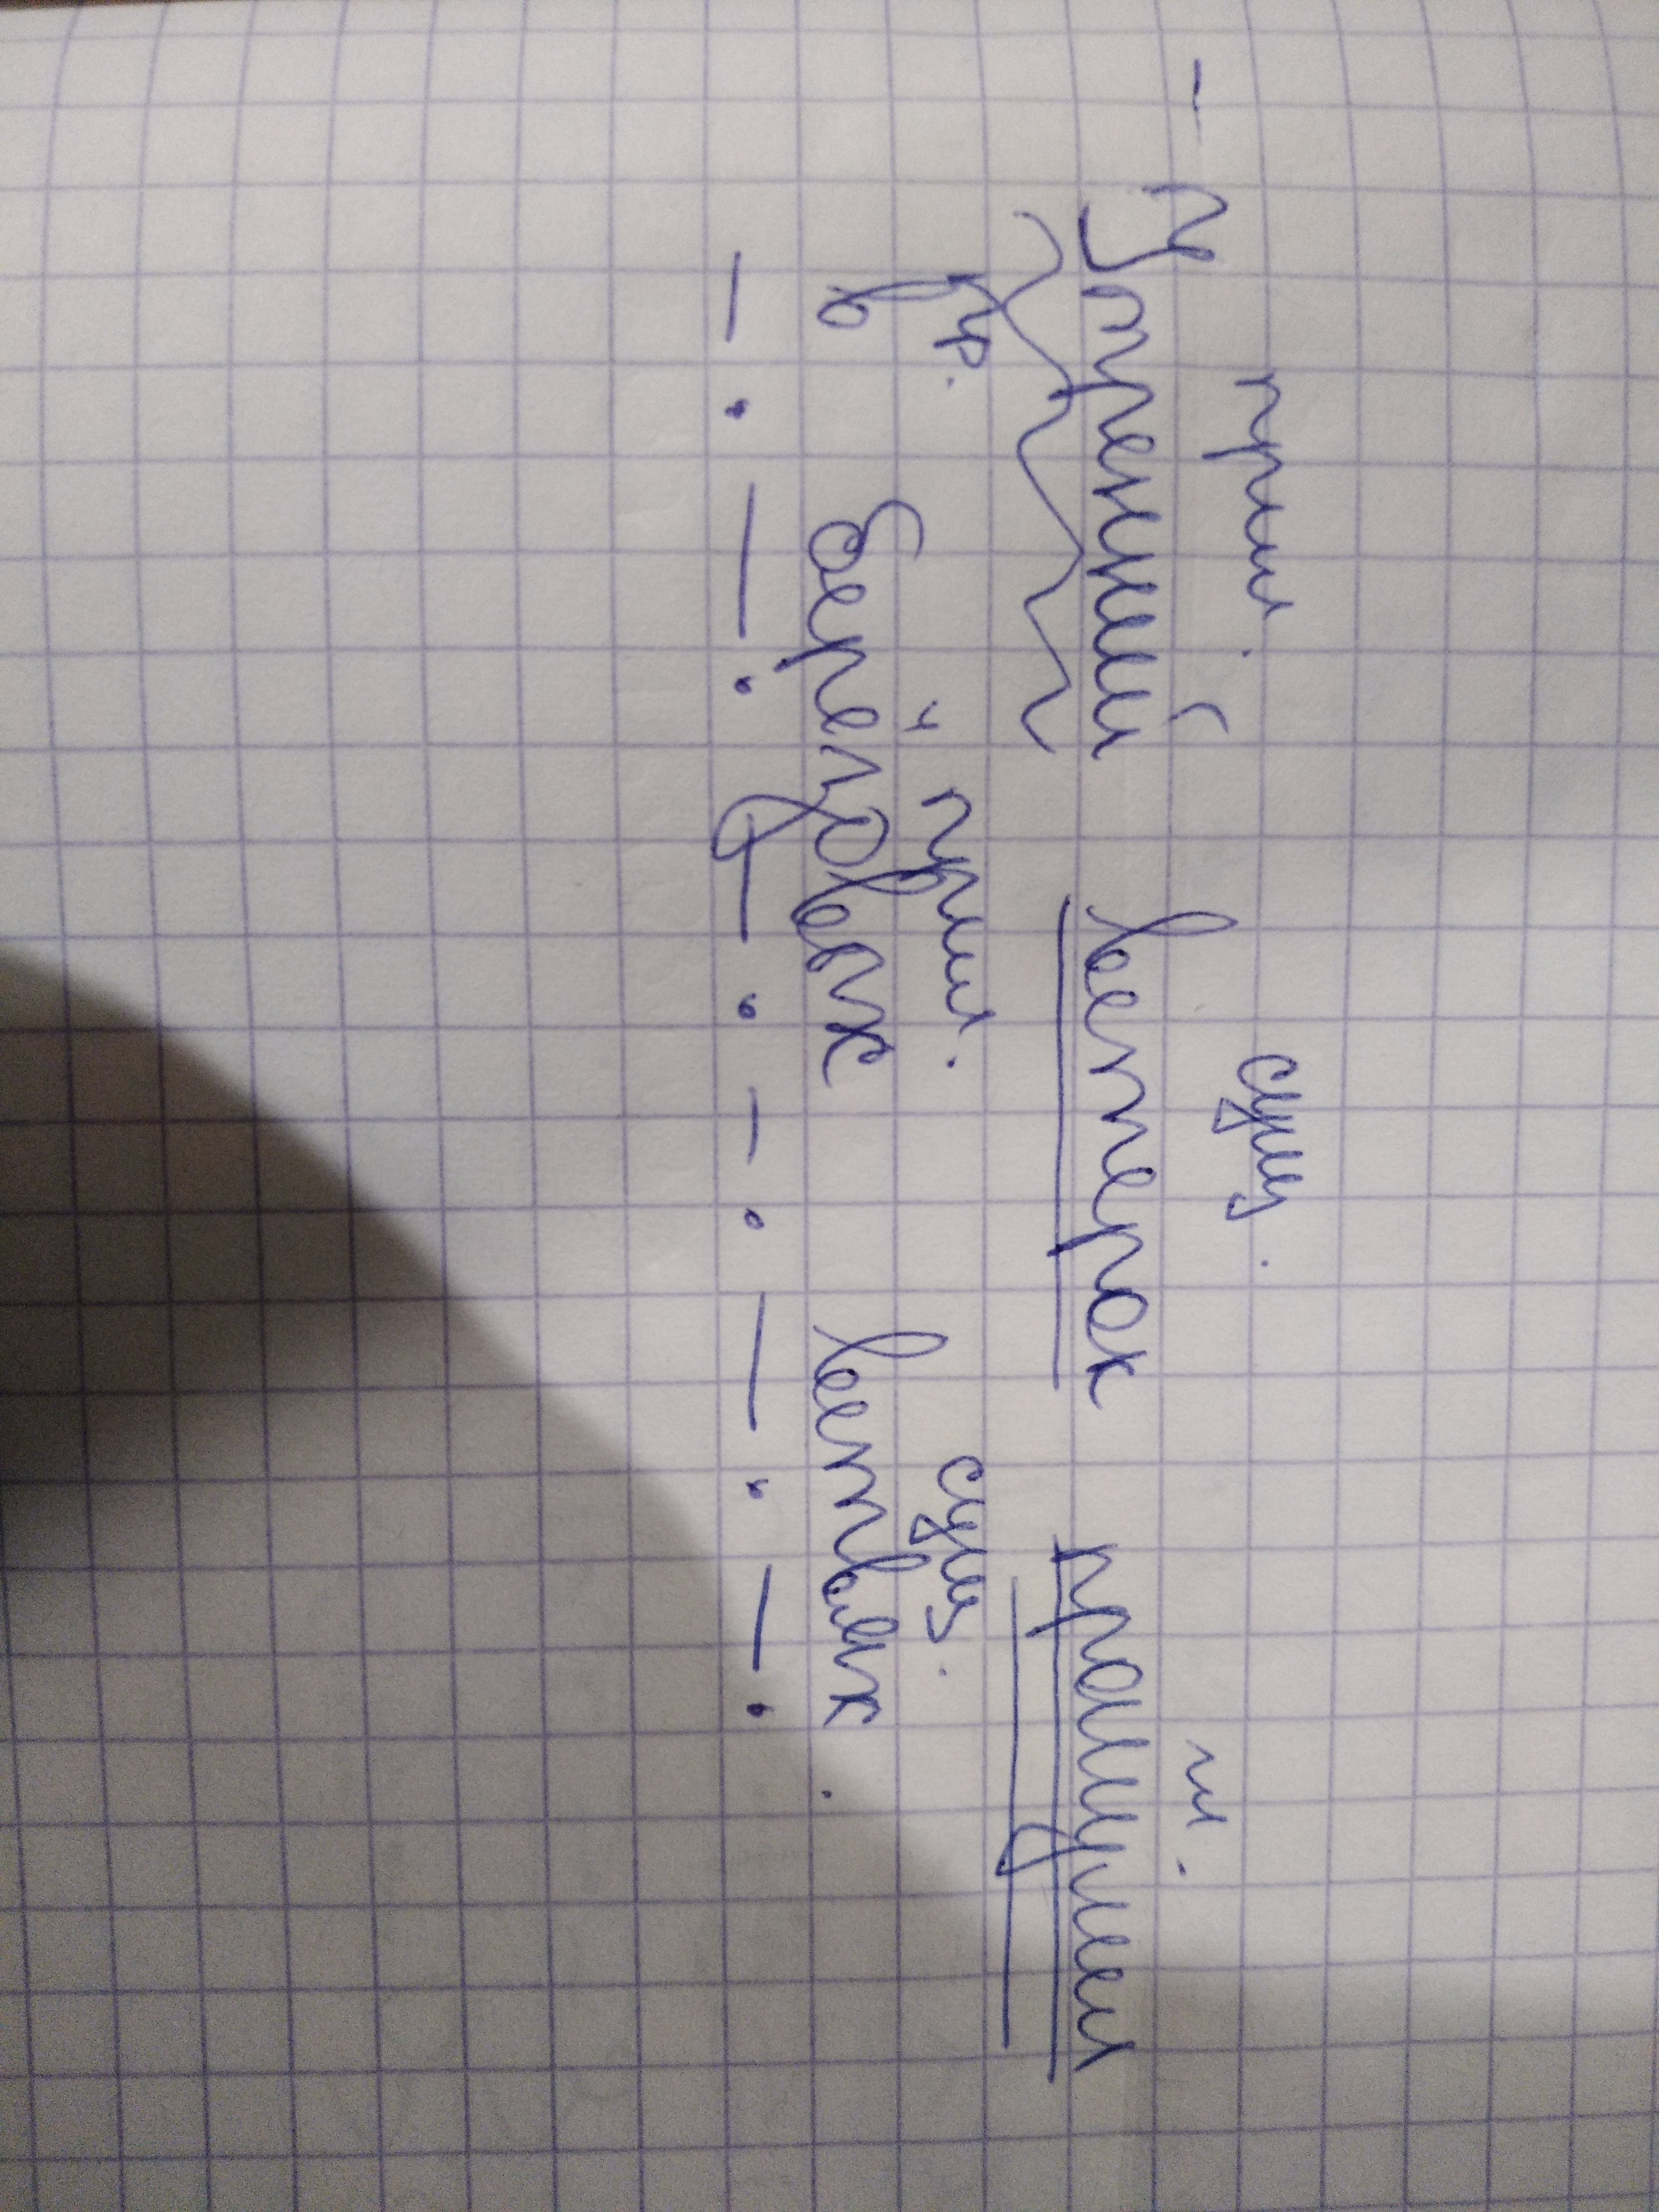 прил. сущ. гл.
– Утренний ветерок прошумел
пр. прил. сущ.
в берёзовых ветвях.